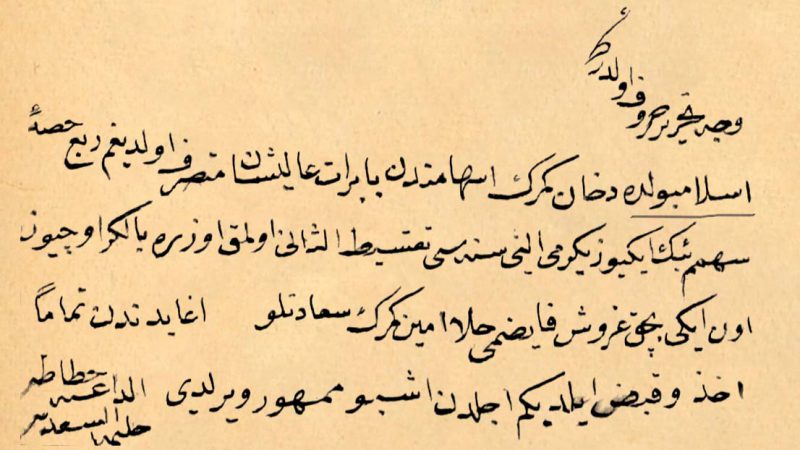 وجه تحریر حروف اولدركه
اسلامبولده دخان كمرك اسهامندن بابرات عالیشان متصرف اولدیغم ربع حصه
سهمم بیك ایكیوز یكرمی التی سنه سی تقسیط الثانی اولمق اوزره یالكز اوچیوز
اون ایكی بچق غروش فایضمی حالا امین كمرك سعادتلو اغا یدندن تماماً
اخذ و قبض ایلدیكم اجلدن اشبو ممهور ویرلدی الداعیه
حلیمه السعدیه